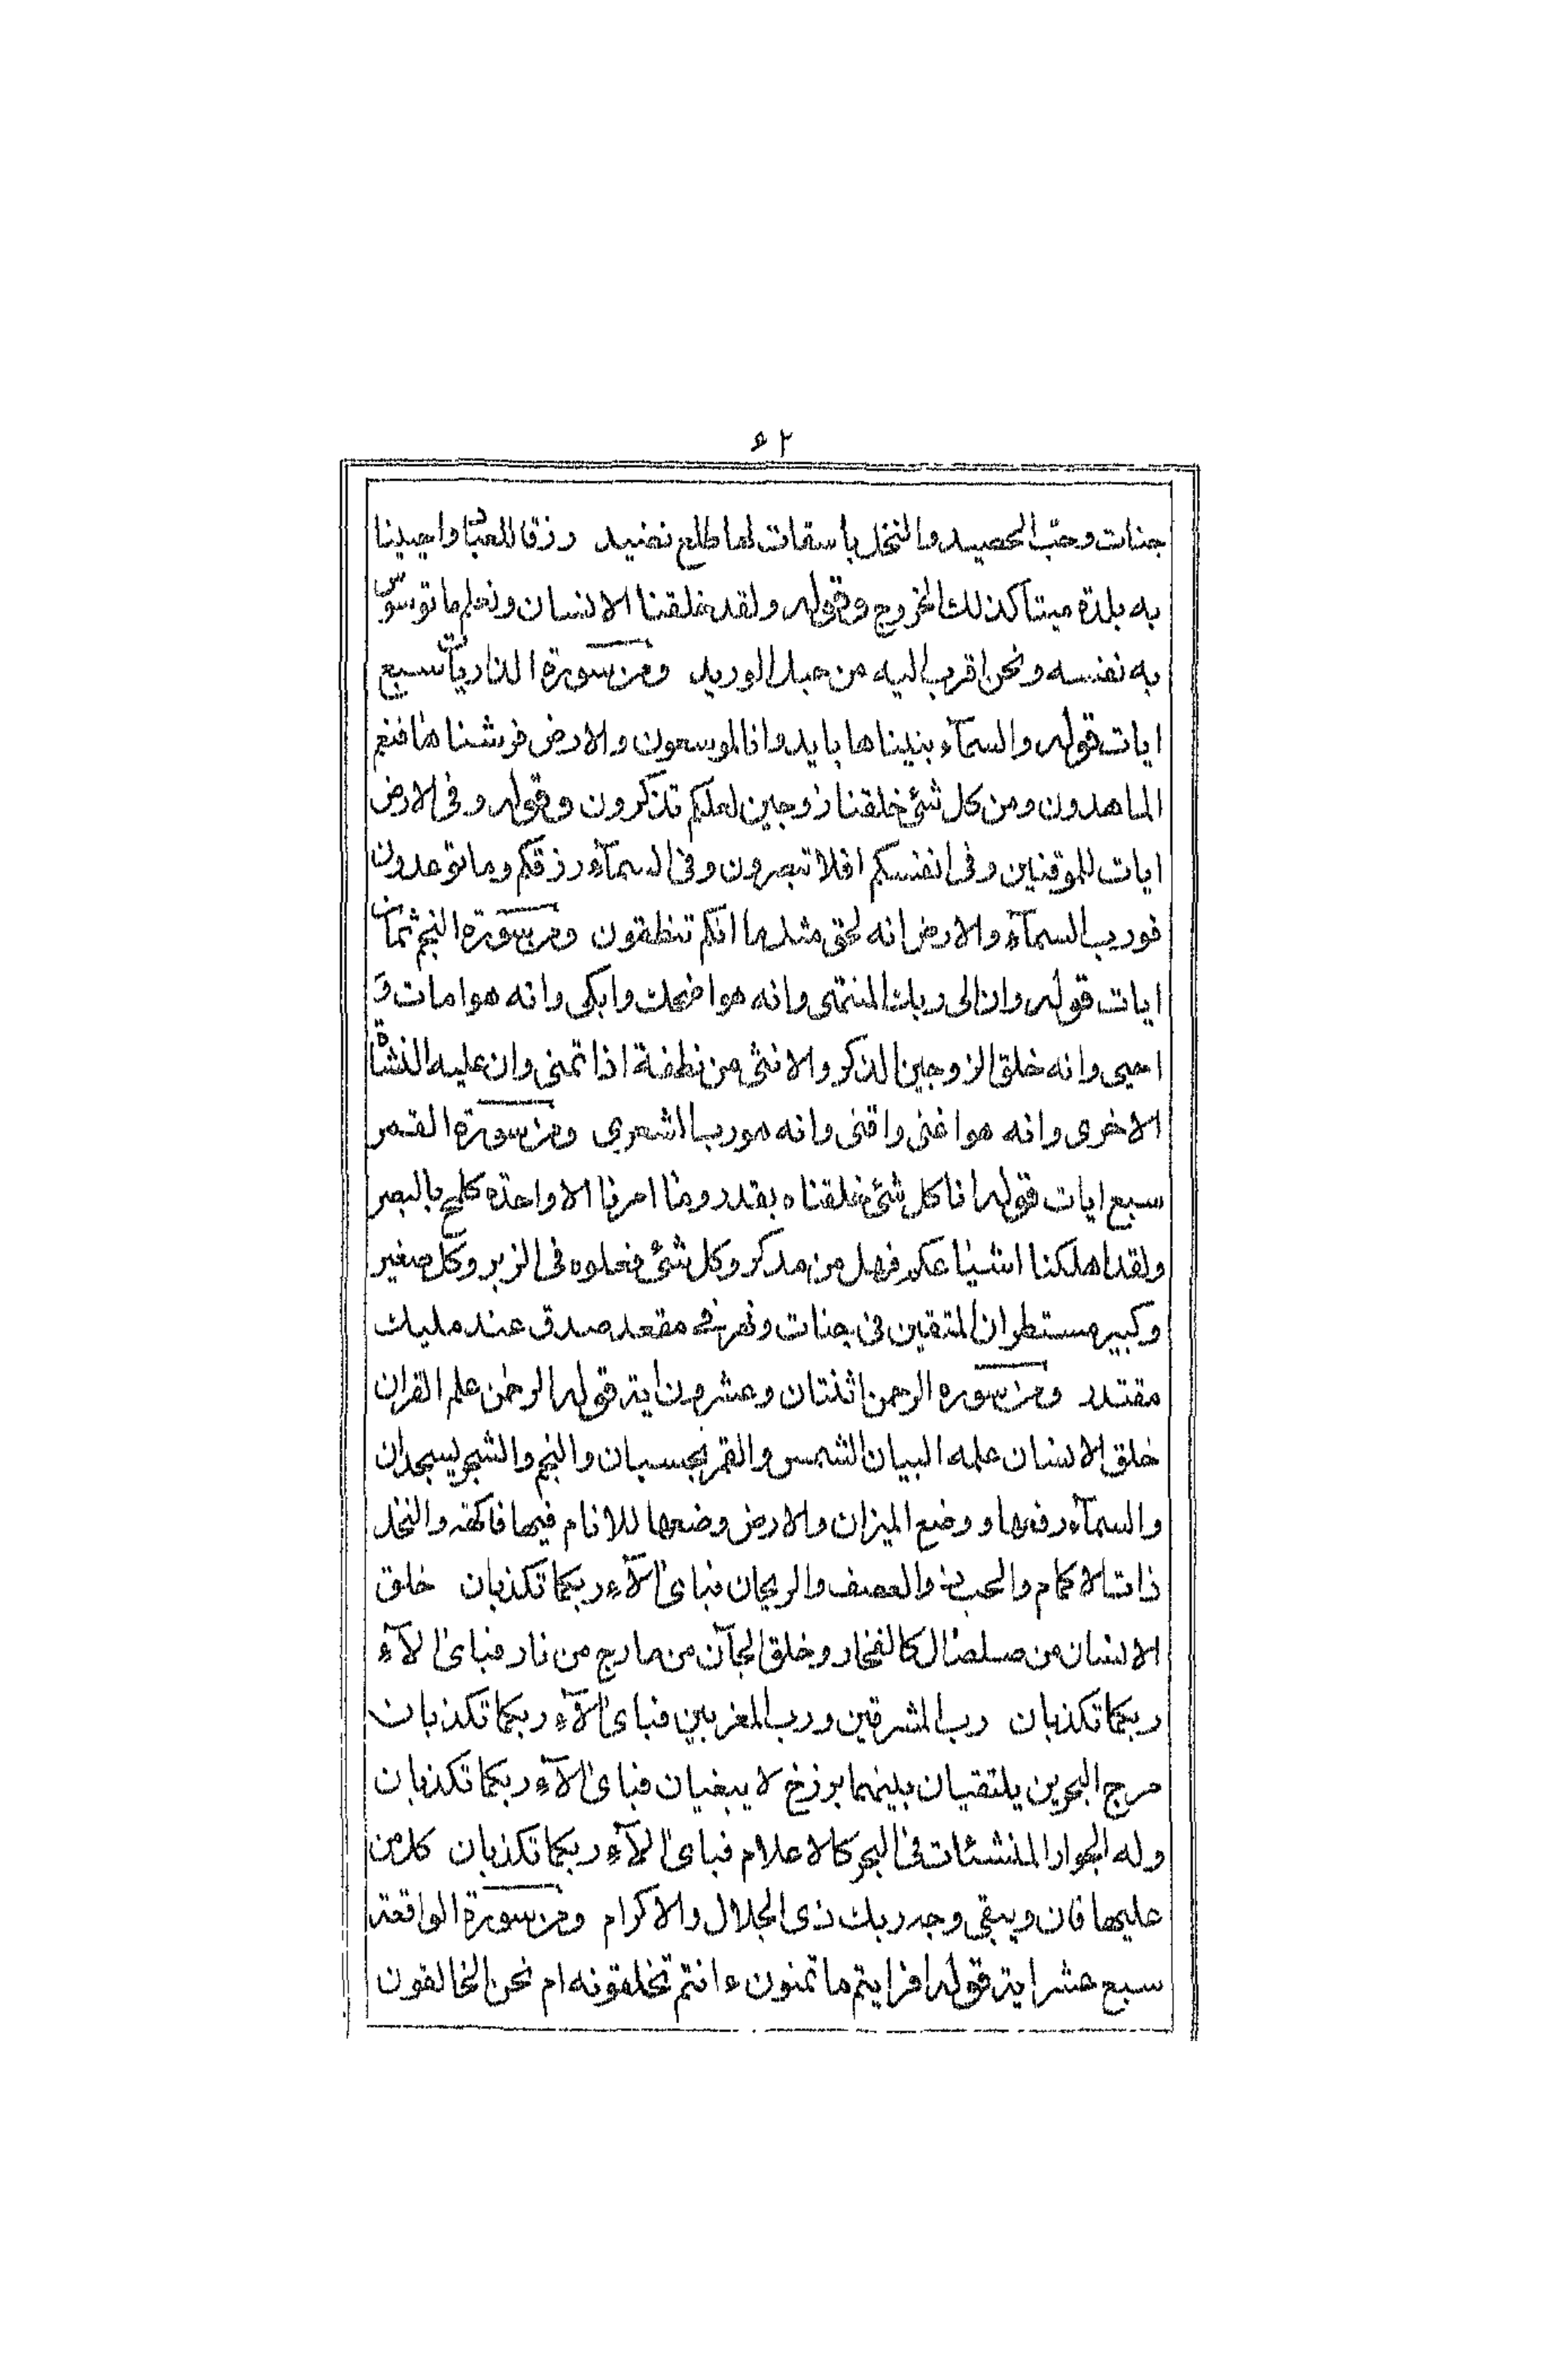 ٤٢
جنات وحب الحصيد والنخل باسقات لها طلع نضيد رزقا للعباد واحيينا
به بلدة ميتا كذلك الخروج وقوله ولقد خلقنا الانسان ونعلم ما توسوس
به نفسه ونحن اقرب اليه من حبل الوريد ومن سورة الذاريات سبع
ايات قوله والسمآء بنيناها بايد وانا لموسعون والارض فرشناها فنعم
الماهدون ومن كل شئ خلقنا زوجين لعلكم تذكرون وقوله وفى الارض
ايات للموقنين وفى انفسكم افلا تبصرون وفى السمآء رزقكم وما توعدون
فورب السمآء والارض انه لحق مثل ما انكم تنطقون ومن سورة النجم ثمان
ايات قوله وان الى ربك المنتهى وانه هو اضحك وابكى وانه هو امات و
احيى وانه خلق الزوجين الذكر والانثى من نطفة اذا تمنى وان عليه النشاة
الاخرى وانه هو اغنى واقنى وانه هو رب الشعرى ومن سورة القمر
سبع ايات قوله انا كل شئ خلقناه بقدر وما امرنا الا واحدة كلمح بالبصر
ولقد اهلكنا اشياعكم فهل من مدكر وكل شئ فعلوه فى الزبر وكل صغير
وكبير مستطر ان المتقين فى جنات ونهر فى مقعد صدق عند مليك
مقتدر ومن سوره الرحمن اثنتان وعشرون اية قوله الرحمن علم القران
خلق الانسان علمه البيان الشمس والقمر بحسبان والنجم والشجر يسجدان
والسمآء رفعها ووضع الميزان والارض وضعها للانام فيها فاكهة والنخل
ذات الاكمام والحب ذو العصف والريحان فباى الآء ربكما تكذبان خلق
الانسان من صلصال كالفخار وخلق الجآن من مارج من نار فباى الآء
ربكما تكذبان رب المشرقين ورب المغربين فباى الآء ربكما تكذبان
مرج البحرين يلتقيان بينهما برزخ لا يبغيان فباى الآء ربكما تكذبان
وله الجوار المنشئات فى البحر كالاعلام فباى الآء ربكما تكذبان كل من
عليها فان ويبقى وجه ربك ذى الجلال والاكرام ومن سورة الواقعة
سبع عشر اية قوله افرايتم ما تمنون ءانتم تخلقونه ام نحن الخالقون